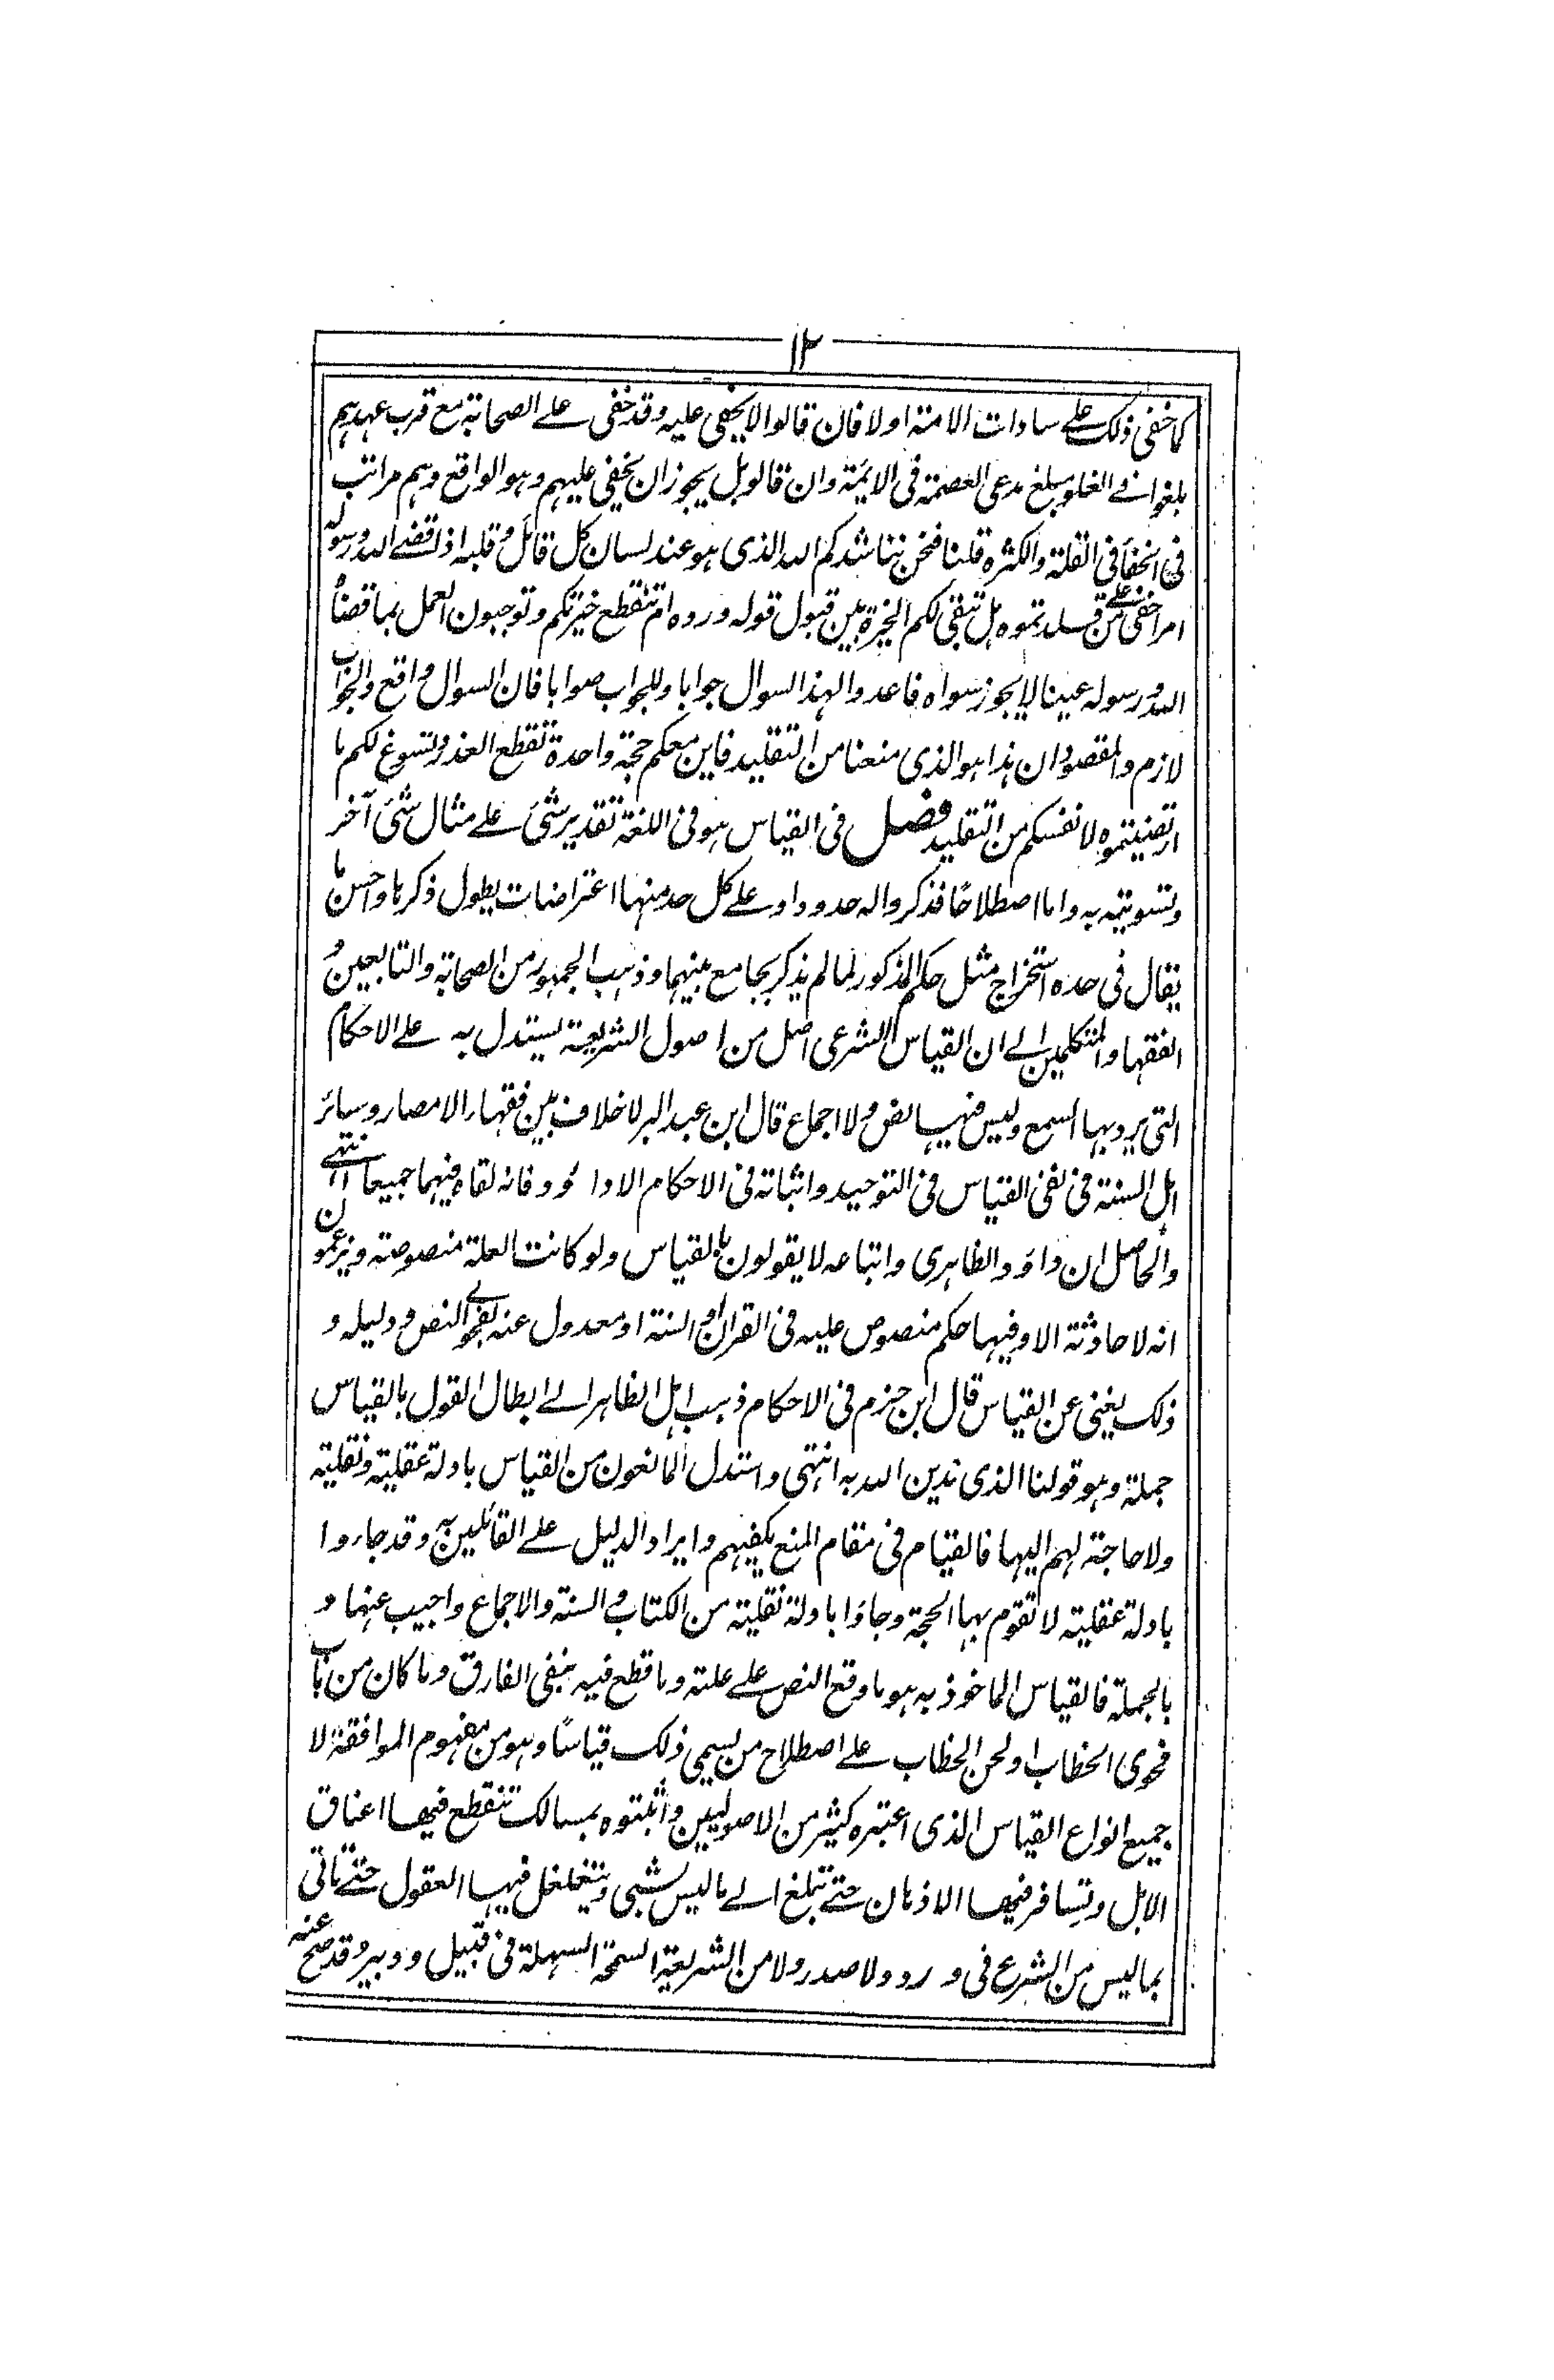 ١٣
كما خفى ذلك على سادات الامة اولا فان قالوا لا يخفى عليه وقد خفى على الصحابة مع قرب عهدهم
بلغوا فى الغلو مبلغ مدعى العصمة فى الائمة وان قالو بل يجوز ان يخفى عليهم وهو الواقع وهم مراتب
فى الخفأ فى القلة والكثره قلنا فنحن نناشدكم الله الذى هو عند لسان كل قائل وقلبه اذا قضى الله ورسوله
امرا خفى على من قلدتموه هل تبقى لكم الخيرة بين قبول قوله ورده ام تنقطع خيرتكم وتوجبون العمل بما قضاه
الله ورسوله عينا لا يجوز سواه فاعدوا لهذا السوال جوابا وللجواب صوابا فان السوال واقع والجواب
لازم والمقصود ان هذا هو الذى منعنا من التقليد فاين معكم حجة واحدة تقطع العذر وتسوغ لكم ما
ارتضيتموه لانفسكم من التقليد فصل فى القياس هو فى اللغة تقدير شئ على مثال شئ آخر
وتسويته به واما اصطلاحًا فذكروا له حدودا وعلى كل حد منها اعتراضات يطول ذكرها واحسن ما
يقال فى حده استخراج مثل حكم المذكور لما لم يذكر بجامع بينهما وذهب الجمهور من الصحابة والتابعين و
الفقها والمتكلمين الى ان القياس الشرعى اصل من اصول الشريعة يستدل به على الاحكام
التى يرد بها السمع وليس فيها نص ولا اجماع قال ابن عبد البر لا خلاف بين فقهاء الامصار وسائر
اهل السنة فى نفى القياس فى التوحيد واثباته فى الاحكام الا داؤود فانه نفاه فيهما جميعا انتهى
والحاصل ان داؤد الظاهرى واتباعه لا يقولون بالقياس ولو كانت العلة منصوصة ويزعمون
انه لا حادثة الا وفيها حكم منصوص عليه فى القرآن او السنة او معدول عنه بفحوى النص ودليله و
ذلك يغنى عن القياس قال ابن حزم فى الاحكام ذهب اهل الظاهر الى ابطال القول بالقياس
جملة وهو قولنا الذى ندين الله به انتهى واستدل المانعون من القياس بادلة عقلية ونقلية
ولا حاجة لهم اليها فالقيام فى مقام المنع يكفيهم وايراد الدليل على القائلين به وقد جاءوا
بادلة عقلية لا تقوم بها الحجة وجاؤا بادلة نقلية من الكتاب والسنة والاجماع واجيب عنها و
بالجملة فالقياس الماخوذ به هو ما وقع النص على علته وما قطع فيه بنفى الفارق وما كان من باب
فحوى الخطاب او لحن الخطاب على اصطلاح من يسمى ذلك قياسًا وهو من مفهوم الموافقة لا
جميع انواع القياس الذى اعتبره كثير من الاصوليين واثبتوه بمسالك تنقطع فيها اعناق
الابل وتسافر فيها الاذهان حتى تبلغ الى ما ليس بشئ وتتغلغل فيها العقول حتى تاتى
بما ليس من الشرع فى ورد ولا صدر ولا من الشريعة السمحة السهلة فى قبيل ودبير وقد صح عنه